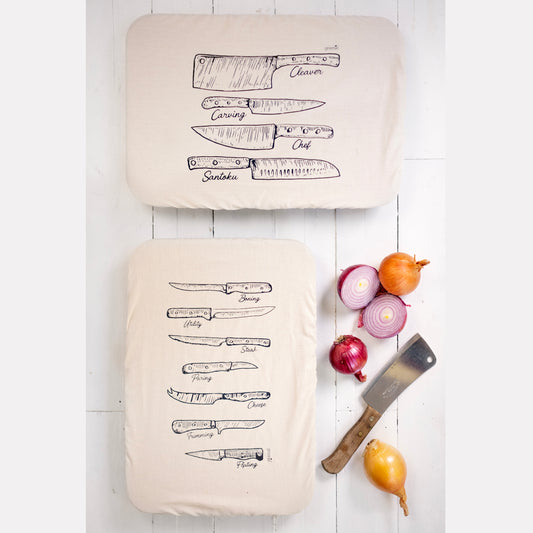 Cleaver
Carving
Chef
Santoku
Boning
Utility
Steak
Paring
Cheese
Trimming